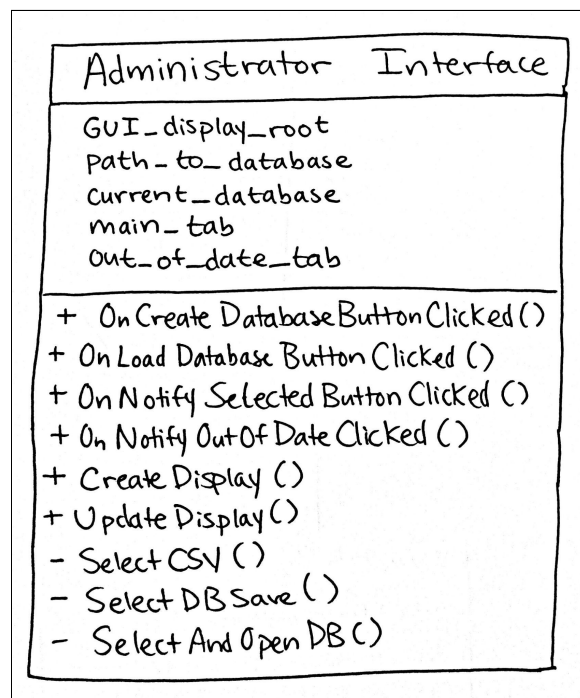 Administrator Interface
GUI_display_root
path_to_database
current_database
main_tab
out_of_date_tab
+ On Create Database Button Clicked ()
+ On Load Database Button Clicked ()
+ On Notify Selected Button Clicked ()
+ On Notify Out Of Date Clicked ()
+ Create Display ()
+ Update Display ()
- Select CSV ()
- Select DB Save ()
- Select And Open DB ()